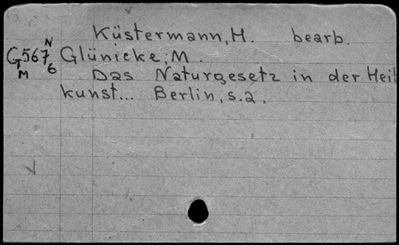 Küstermann, H. bearb.
G567 N Glünicke, M.
M 6 Das Naturgesetz in der Heil
kunst... Berlin, s.a.